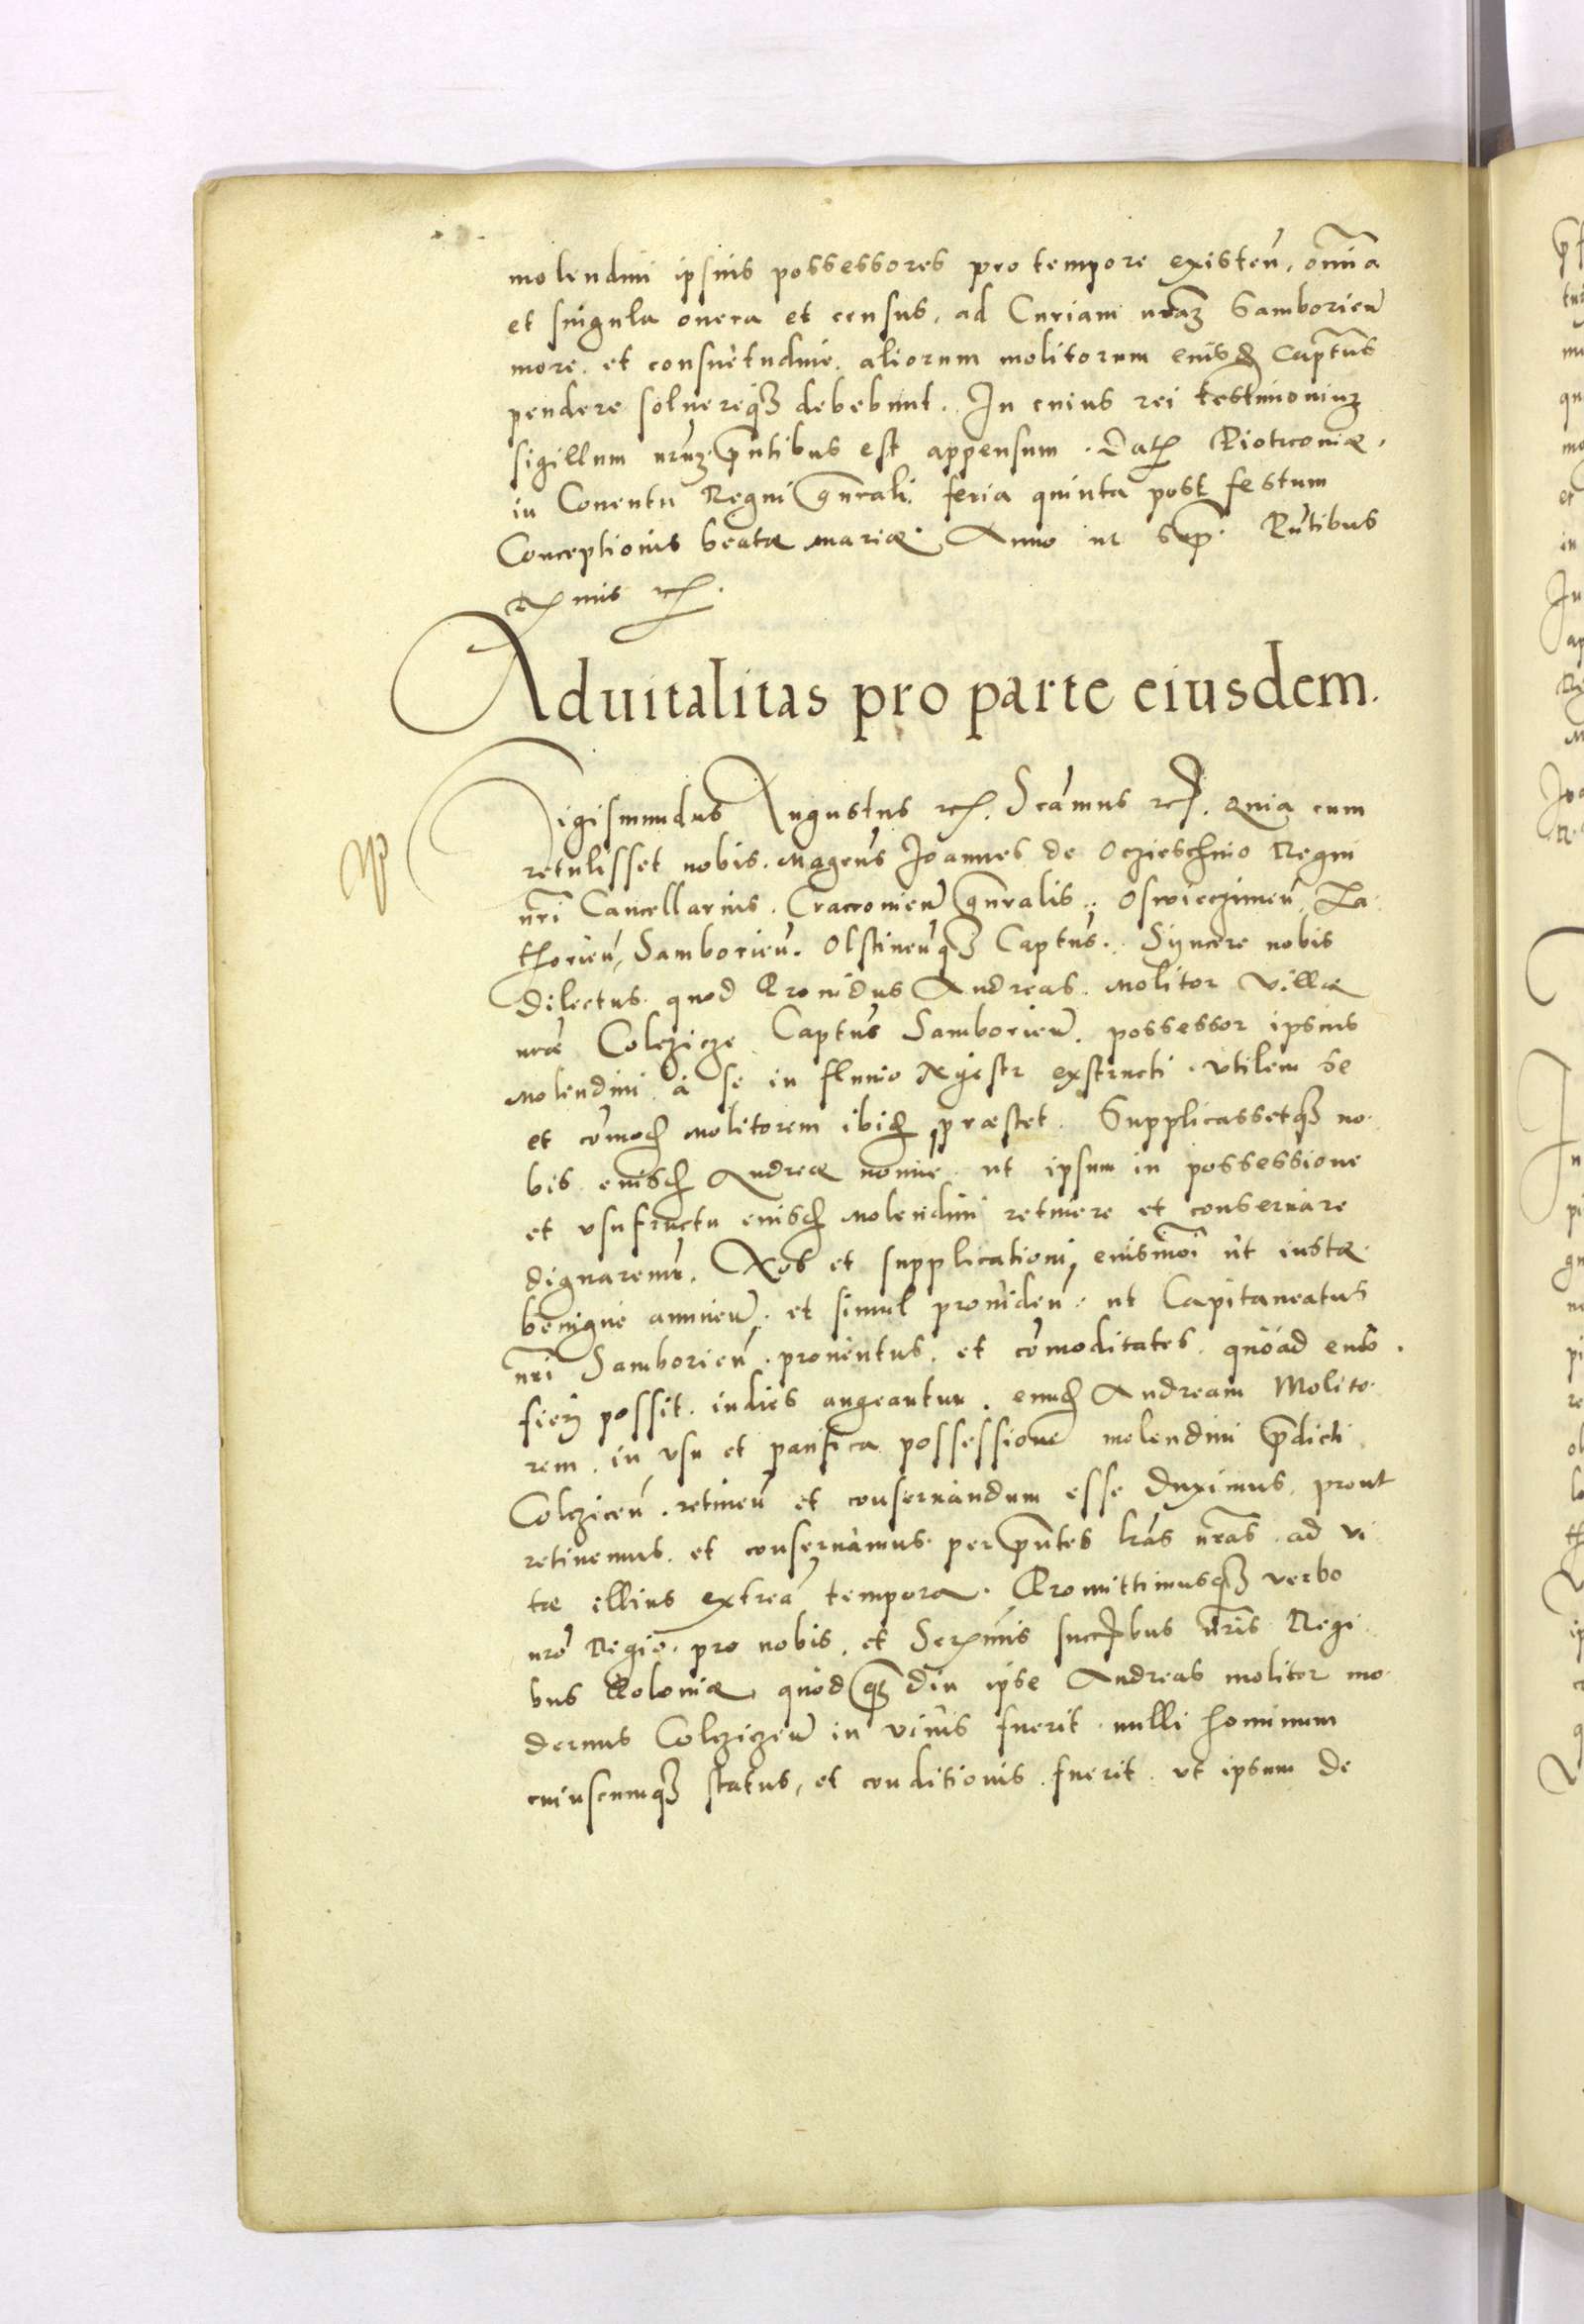 molendini ipsius possessores pro tempore existen̄, om̄ia
et singula onera et census, ad Curiam nr̄aꝫ Samborien̄
more et consuetudine aliorum molitorum eiusd. Capt̄us
pendere soluereqꝫ debebunt. In cuius rei testimoniuꝫ
sigillum nr̄uꝫ pn̄tibus est appensum. Dat. Piotrconiæ
in Conentu Regni gn̄rali feria quinta post festum
Conceptionis beatæ Mariæ Anno ut sup. Pn̄tibus
etc.
Aduitalitas pro parte eiusdem.
Sigismundus Augustus etc. Sr̄amus etc. Quia cum
retulisset nobis Magcūs Joannes de Oczieschino Regni
nr̄i Cancellarius. Cracouien̄ gn̄ralis, Oswieczimen̄ Za-
thorien̄, Samborien̄. Olstinen̄qꝫ Captn̄s. Syncere nobis
dilectus quod Prouidus Andreas Molitor villæ
nr̄æ Colczicze Captūs Samborien̄. possessor ipsius
Molendini à se in fluuio Nyestr exstructi utilem se
et com̄od. Molitorem ibid. præstet. Supplicassetqꝫ no-
bis eiusd. Andreæ nomine ut ipsum in possessione
et usufructu eiusd. Molendini retinere et conseruare
dignaremur. Nos et supplicationi eiusmōi ut iustæ
benigne annuen̄. et simul prouiden̄. ut Capitaneatus
nr̄i Samborien̄. prouentus. et com̄oditates quoad eius
fieri possit indies augeantur. eund. Andream Molito-
rem in usu et pacifica possessione molendini p̄dicti
Colczicen̄. retinen̄ et conseruandum esse duximus, prout
retinemus et conseruamus per pn̄tes lr̄as nr̄as ad vi-
tæ illius extrēa tempora. Promittimusqꝫ verbo
nr̄o Regio. pro nobis, et Ser. succ̄bus nr̄is Regi-
bus Poloniæ quod qꝫ diu ipse Andreas molitor mo-
dernus Colcziczen̄ in viuis fuerit. nulli hominum
cuiuscunqꝫ status, et conditionis fuerit. ut ipsum de